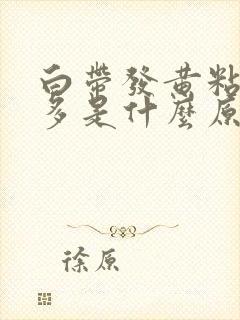 白帶發黃粘
多是什麼原
徐原